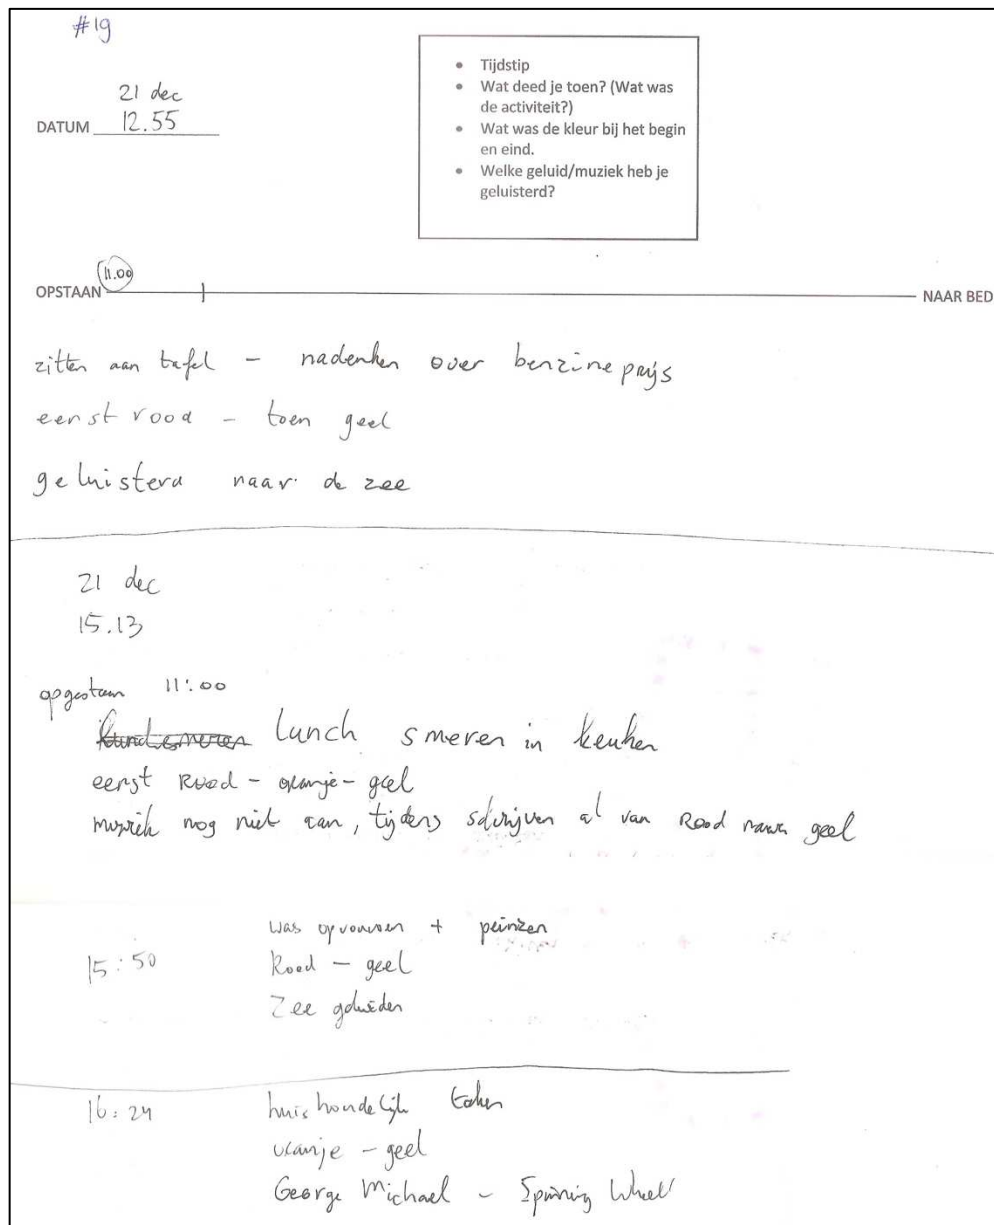 #19
21 dec
DATUM 12.55
• Tijdstip
• Wat deed je toen? (Wat was
de activiteit?)
• Wat was de kleur bij het begin
en eind.
• Welke geluid/muziek heb je
geluisterd?
11.00
OPSTAAN NAAR BED
zitten aan tafel - nadenken over benzineprijs
eerst rood - toen geel
geluisterd naar de zee
21 dec
15.13
opgestaan 11:00
lunch smeren in keuken
eerst Rood - oranje - geel
muziek nog niet aan, tijdens schrijven al van Rood naar geel
was opvouwen + peinzen
15:50 Rood - geel
Zee geluiden
16:24 huishoudelijk taken
oranje - geel
George Michael - Spinning Wheel